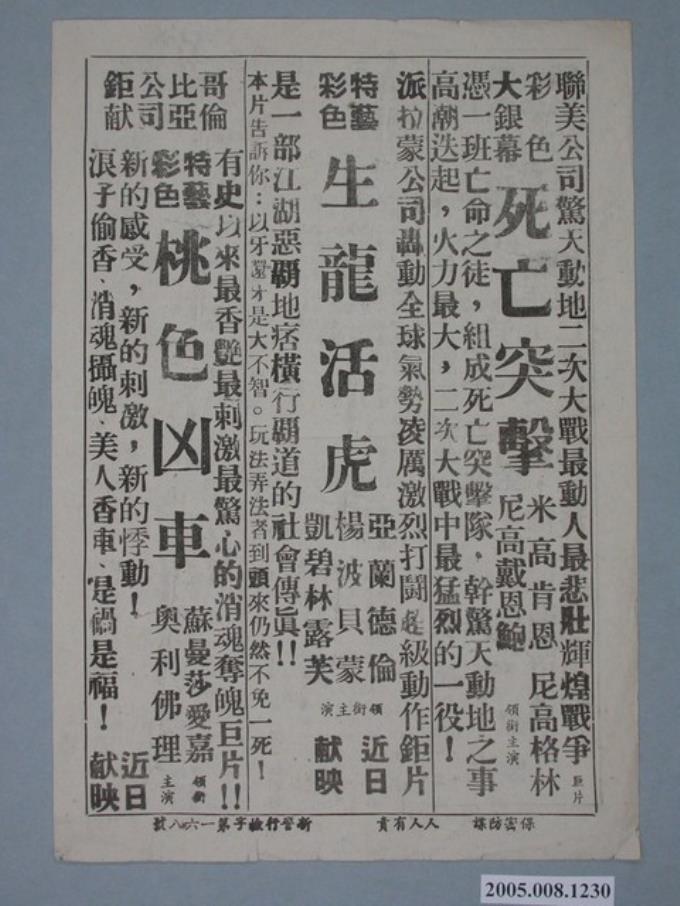 聯美公司驚天動地二次大戰最動人最悲壯輝煌戰爭巨片
彩色
大銀幕
死亡突擊
米高肯恩 尼高格林
尼高戴恩鮑
領銜主演
憑一班亡命之徒，組成死亡突擊隊．幹驚天動地之事
高潮迭起，火力最大，二次大戰中最猛烈的一役！
派拉蒙公司轟動全球氣勢凌厲激烈打鬪超級動作鉅片
特藝
彩色
生龍活虎
亞蘭德倫
楊波貝蒙
凱碧林露芙
領銜主演
近日
献映
是一部江湖惡覇地痞橫行覇道的社會傳眞!!
本片告訴你：以牙還牙是大不智。玩法弄法者到頭來仍然不免一死！
哥倫
比亞
公司
鉅献
有史以來最香艷最刺激最驚心的消魂奪魄巨片!!
特藝
彩色
桃色凶車
蘇曼莎愛嘉
奧利佛理
領銜
主演
新的感受，新的刺激，新的悸動！
浪子偷香、消魂攝魄、美人香車、是禍是福！
近日
献映
保密防諜 人人有責
新警行檢字第一六八號
2005.008.1230